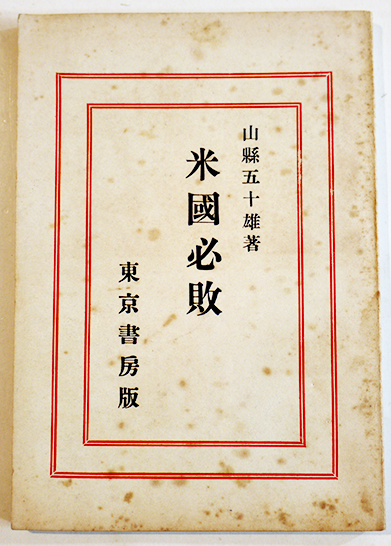 山縣五十雄著
米國必敗
東京書房版